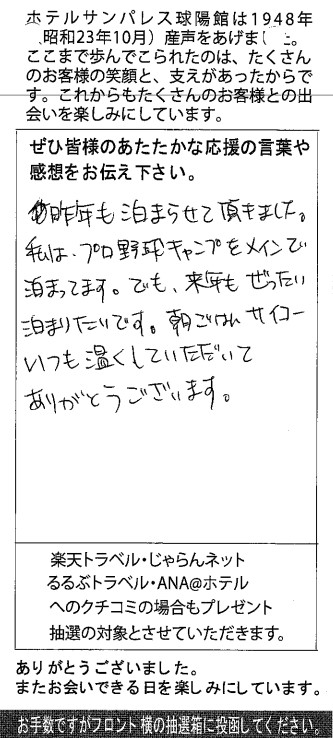 ホテルサンパレス球陽館は1948年
(昭和23年10月）産声をあげました。
ここまで歩んでこられたのは、たくさん
のお客様の笑顔と、支えがあったからで
す。これからもたくさんのお客様との出
会いを楽しみにしています。
ぜひ皆様のあたたかな応援の言葉や
感想をお伝え下さい。
昨年も泊まらせて頂きました。
私は、プロ野球キャンプをメインで
泊まってます。でも、来年もぜったい
泊まりたいです。朝ごはんサイコー
いつも温くしていただいて
ありがとうございます。
楽天トラベル・じゃらんネット
るるぶトラベル・ANA@ホテル
へのクチコミの場合もプレゼント
抽選の対象とさせていただきます。
ありがとうございました。
またお会いできる日を楽しみにしています。
お手数ですがフロント横の抽選箱に投函してください。